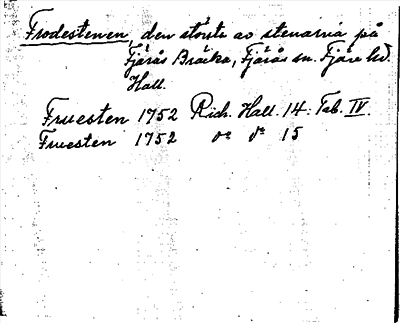 Frodestenen, den störste av stenarna på
Fjärås Bräcka, Fjärås sn. Fjäre hd.
Hall.
Fruesten 1752 Rich. Hall. 14. Tab. IV.
Fruesten 1752 do do 15